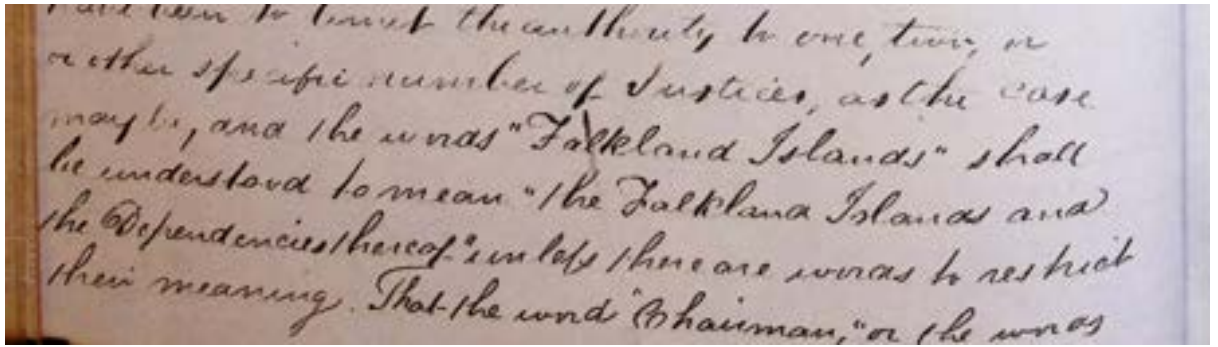 have been to limit the authority to one, two, or
or other specific number of Justices, as the case
may be, and the words "Falkland Islands" shall
be understood to mean "the Falkland Islands and
the Dependencies thereof" unless there are words to restrict
their meaning. That the word "Chairman," or the words